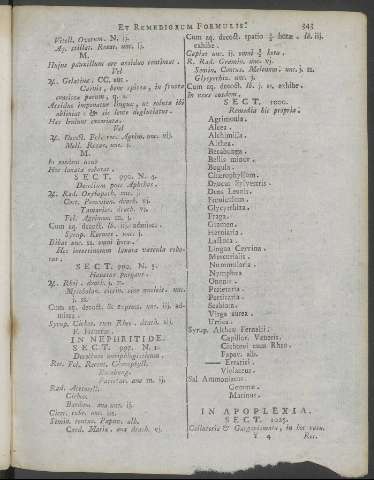 ET REMEDIORUM FORMULIS. 343
Vitell. Ovorum. N. ij.
Aq. stillat. Rosar. unc. ij.
M.
Hujus pauxillum ore assidue contineat.
Vel
℞. Gelatinæ CC. unc.
Carnis, bene spissa, in frusta
concisæ parum, q. v.
Assidue imponatur linguæ, ut roboret ibi
obtineat; & sic lente deglutiatur.
Hæc leniunt excoriata.
Vel
℞. Decoct. Fol. rec. Agrim. unc. vij.
Mell. Rosar. unc. j.
M.
In eosdem usus
Hæc lanata roborat.
SECT. 990. N. 4.
Decoctum post Aphthas.
℞. Rad. Oxylapath. unc. j.
Cort. Peruvian. drach. vj.
Tamarisc. drach. vj.
Fol. Agrimon. m. j.
Cum aq. decoct. lb. iij. admisce.
Syrup. Kermes. unc. j.
Bibat unc. ii. omni hora.
Hæc intestinorum lanata viscula roborat.
SECT. 990. N. 5.
Hæcce purgant.
℞. Rhei. drach. j. ss.
Myrobalan. citrin. sine nucleis. unc.
j. ss.
Cum aq. decoct. & express. unc. iij. admisce.
Syrup. Cichor. cum Rheo. drach. xij.
F. Haustus.
IN NEPHRITIDE.
SECT. 997. N. 1.
Decoctum antiphlogisticum.
Rec. Fol. Recent. Chærophyll.
Becabung.
Parietar. ana m. ij.
Rad. Acetosell.
Cichor.
Bardan. ana unc. iij.
Cicer. rubr. unc. iij.
Semin. contus. Papav. alb.
Card. Mariæ. ana drach. vj.
Cum aq. decoct. spatio ½ horæ. lb. iij.
exhibe.
Capiat unc. ij. omni ½ hora.
R. Rad. Gramin. unc. vj.
Semin. Contus. Melonum. unc. j. ss.
Glycyrrhiz. unc. j.
Cum aq. decoct. lb. j. ss. exhibe.
In usus eosdem.
SECT. 1000.
Remedia hic propria:
Agrimonia.
Alcea.
Alchimilla.
Althea.
Becabunga.
Bellis minor.
Bugula.
Chærophyllum.
Daucus Sylvestris.
Dens Leonis.
Fœniculum.
Glycyrrhiza.
Fraga.
Gramen.
Herniaria.
Lactuca.
Lingua Cervina.
Mercurialis.
Nummularia.
Nymphæa
Ononis.
Parietaria.
Pervinca.
Scabiosa.
Virga aurea.
Urtica.
Syrup. Altheæ Fernelii:
Capillor. Veneris.
Cichorei cum Rheo.
Papav. alb.
— Erratici.
Violaceus.
Sal Ammoniacus.
Gemmæ.
Marinus.
IN APOPLEXIA.
SECT. 1025.
Collutoria & Gargarismata, in hoc casu.
Y 4 Rec.